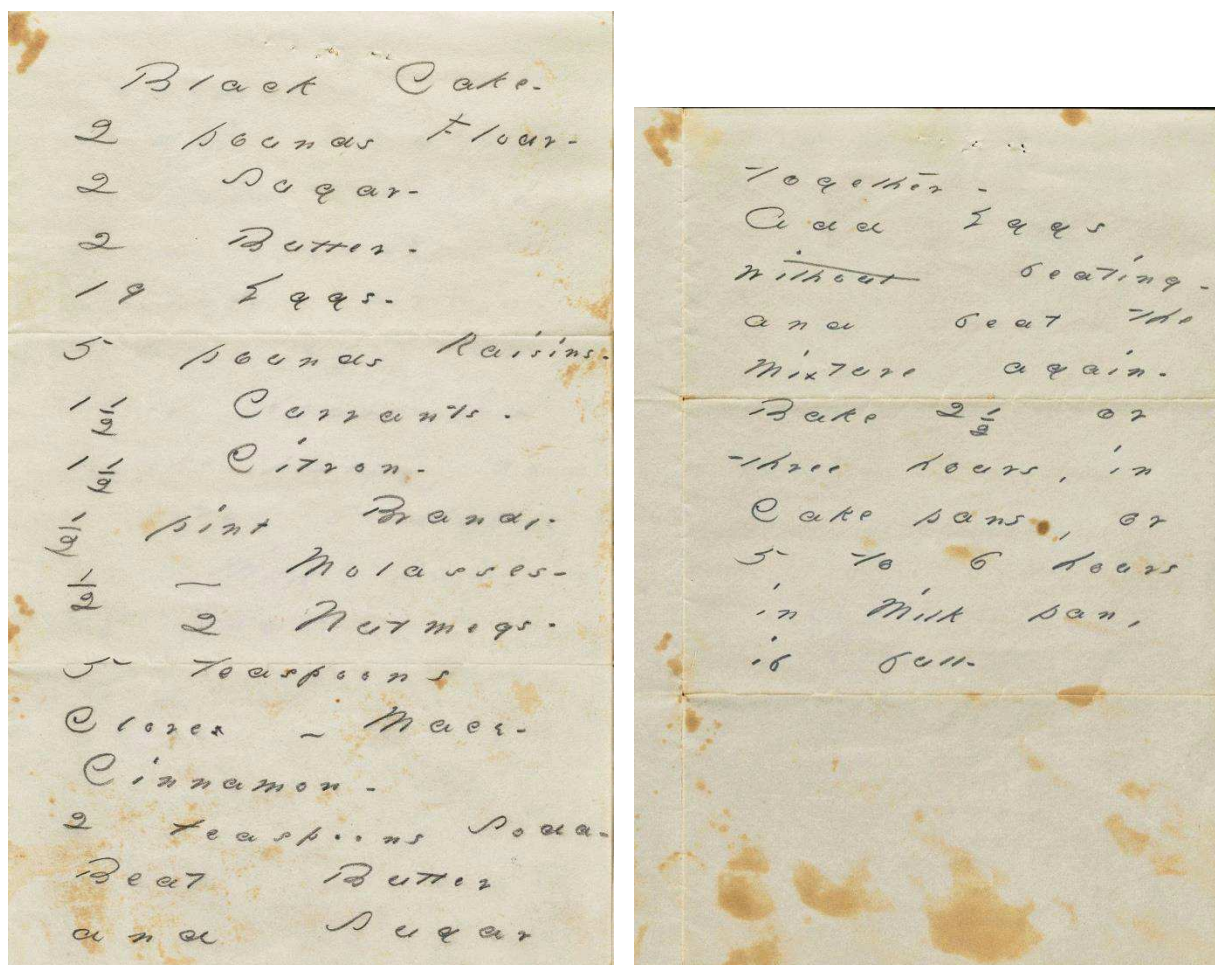 Black Cake-
2 pounds Flour-
2 Sugar-
2 Butter-
19 Eggs-
5 pounds Raisins-
1 1/2 Currants-
1 1/2 Citron-
1/2 pint Brandy-
1/2 — Molasses-
2 Nutmegs-
5 teaspoons
Cloves - Mace-
Cinnamon-
2 teaspoons Soda-
Beat Butter
and Sugar
together-
Add Eggs
without beating-
and beat the
mixture again-
Bake 2 1/2 or
three hours, in
Cake pans, or
5 to 6 hours
in Milk pan,
if full-